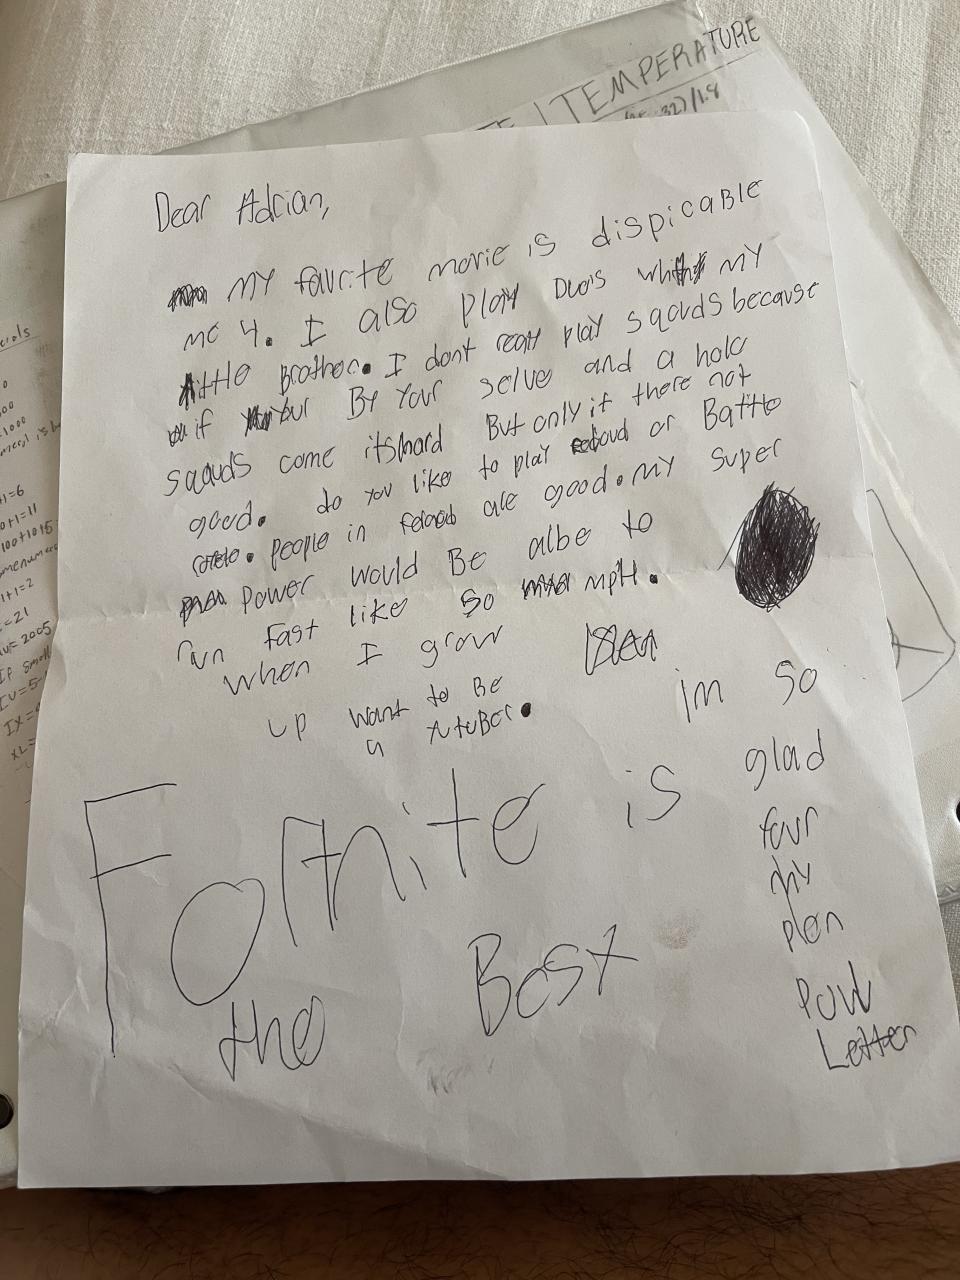 TEMPERATURE
32)/1.8
Dear Adrian,
MY favrite movie is dispicaBle
me 4. I also Play Duos whith MY
little Brother. I dont realy play sqauds because
if your By Your selve and a hole
sqauds come its hard But only if there not
good. do you like to play reloud or Battle
. people in reload are good. my super
Power would Be albe to
run fast like so mph.
when I grow
up want to Be
a YutuBer.
im so
glad
four
my
pen
Letter
Fortnite is
the Best
erols
00
1000
+1=6
0+1=11
100+10+5
1+1=2
=21
=2005
IF small
IV=5-
IX=
XL=